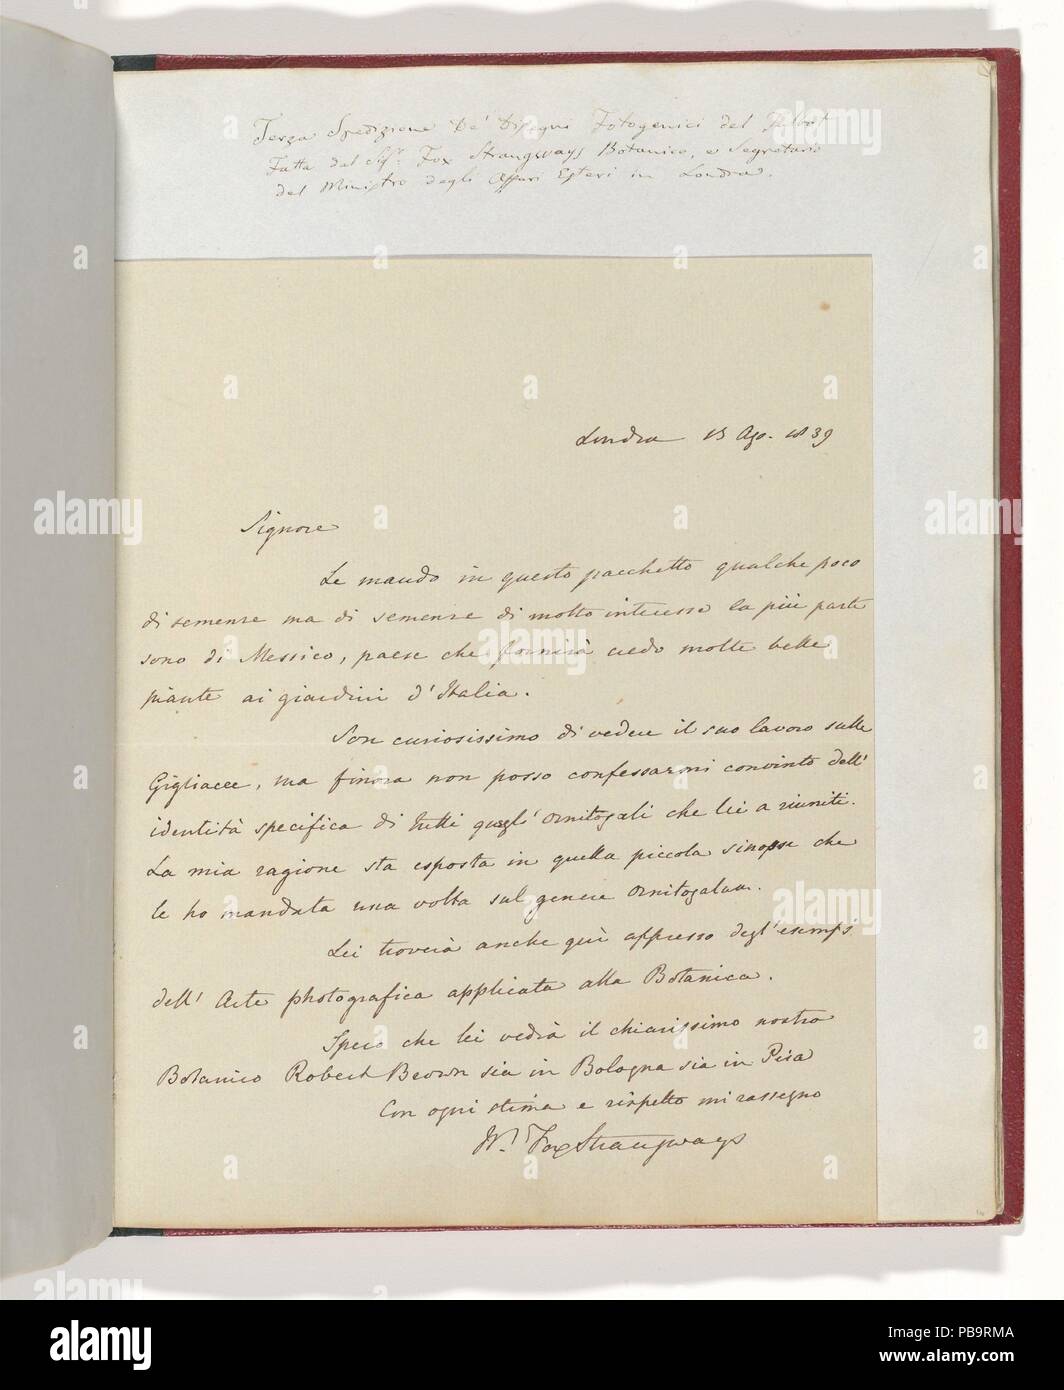 Terza Spedizione De' Disegni Fotogenici del Talbot
Fatta dal Sigr. Fox Strangways Botanico, e Segretario
del Ministro degli Affari Esteri in Londra.
Londra 13 Ago. 1839
Signore
Le mando in questo pacchetto qualche poco
di semenze ma di semenze di molto interesse la più parte
sono di Messico, paese che fornirà credo molte belle
piante ai giardini d'Italia.
Son curiosissimo di vedere il suo lavoro sulle
Gigliacee, ma finora non posso confessarmi convinto dell'
identità specifica di tutti quegl' ornitogali che lei a riuniti.
La mia ragione sta esposta in quella piccola sinopse che
le ho mandata una volta sul genere ornitogalum.
Lei troverà anche quì appresso degl'esempj
dell' Arte photografica applicata alla Botanica.
Spero che lei vedrà il chiarissimo nostro
Botanico Robert Brown sia in Bologna sia in Pisa
Con ogni stima e rispetto mi rassegno
W. Fox Strangways
alamy
Image ID: PB9RMA
www.alamy.com